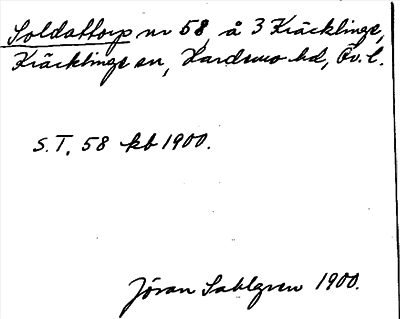 Soldattorp nr 58, å 3 Kräcklinge,
Kräcklinge sn, Hardemo hd, Ör. l.
S.T. 58 kb 1900.
Jöran Sahlgren 1900.